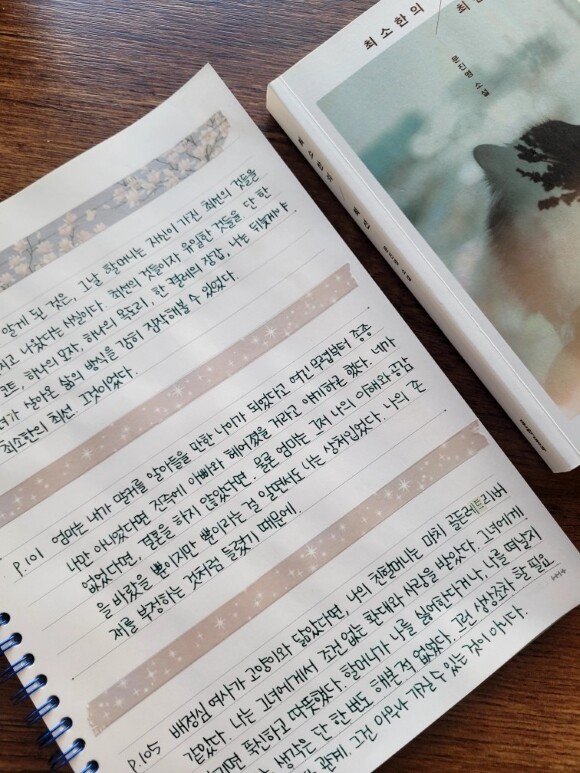 최소한의
문진영 소설
최소한의
문진영 소설
알게 된 것은, 그날 할머니는 자신이 가진 최선의 것들을
나왔다는 사실이다. 최선의 것들이자 유일한 것들을 단 한
코트, 하나의 모자, 하나의 목도리, 한 켤레의 장갑, 나는 뒤늦게야
살아온 삶의 방식을 감히 짐작해볼 수 있었다.
최소한의 최선. 그것이었다.
P.101 엄마는 내가 말귀를 알아들을 만한 나이가 되었다고 여긴 무렵부터 종종
나만 아니었다면 진즉에 아빠와 헤어졌을 거라고 얘기하곤 했다. 네가
없었다면, 결혼을 하지 않았다면. 물론 엄마는 그저 나의 이해와 공감
을 바랐을 뿐이지만 뿐이라는 걸 알면서도 나는 상처입었다. 나의 존
재를 부정하는 것처럼 들렸기 때문에.
P.105 배정심 여사가 고양이와 닮았다면, 나의 친할머니는 마치 골든레트리버
같았다. 나는 그녀에게서 조건 없는 환대와 사랑을 받았다. 그녀에게
푹신하고 따뜻했다. 할머니가 나를 싫어한다거나, 나를 떠날지
생각은 단 한 번도 해본 적 없었다. 그런 상상조차 할 필요
관계. 그건 아무나 가질 수 있는 것이 아니다.